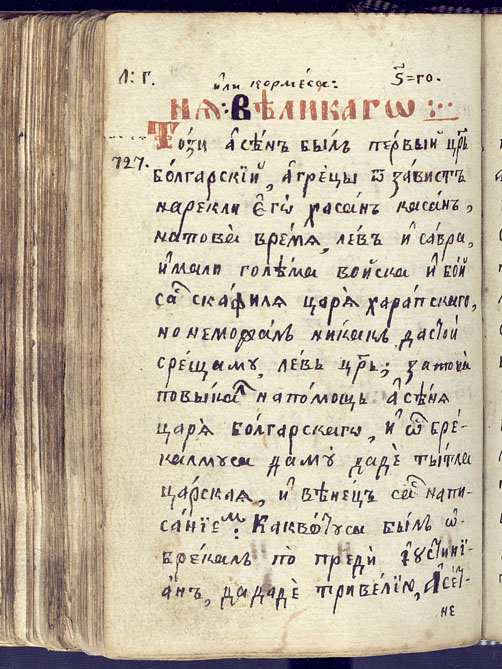 л: г. ѕ҃=го.
или кормеса:
нꙗ: вѣликагѡ
Този асѣнъ былъ первый цр҃ь
727.
болгарскїй, а грецы ѿ завистъ
нарекли его хасанъ касанъ,
на това время, левъ и савра,
имали голѣма войска и бой
са скафилѧ царѧ харапскаго,
но неможалъ никакъ да стой
срещаму, левъ цр҃ь; за това
повыкал на помощь асѣнѧ
царѧ болгарскагѡ, и ѡбре-
калмуса даму даде тытла
царская, и вѣнецъ са напи-
санїем: Каквотуса былъ ѡ-
брекалъ по преди ꙋстинї-
анъ, да даде тривелїю, Асѣ-
не